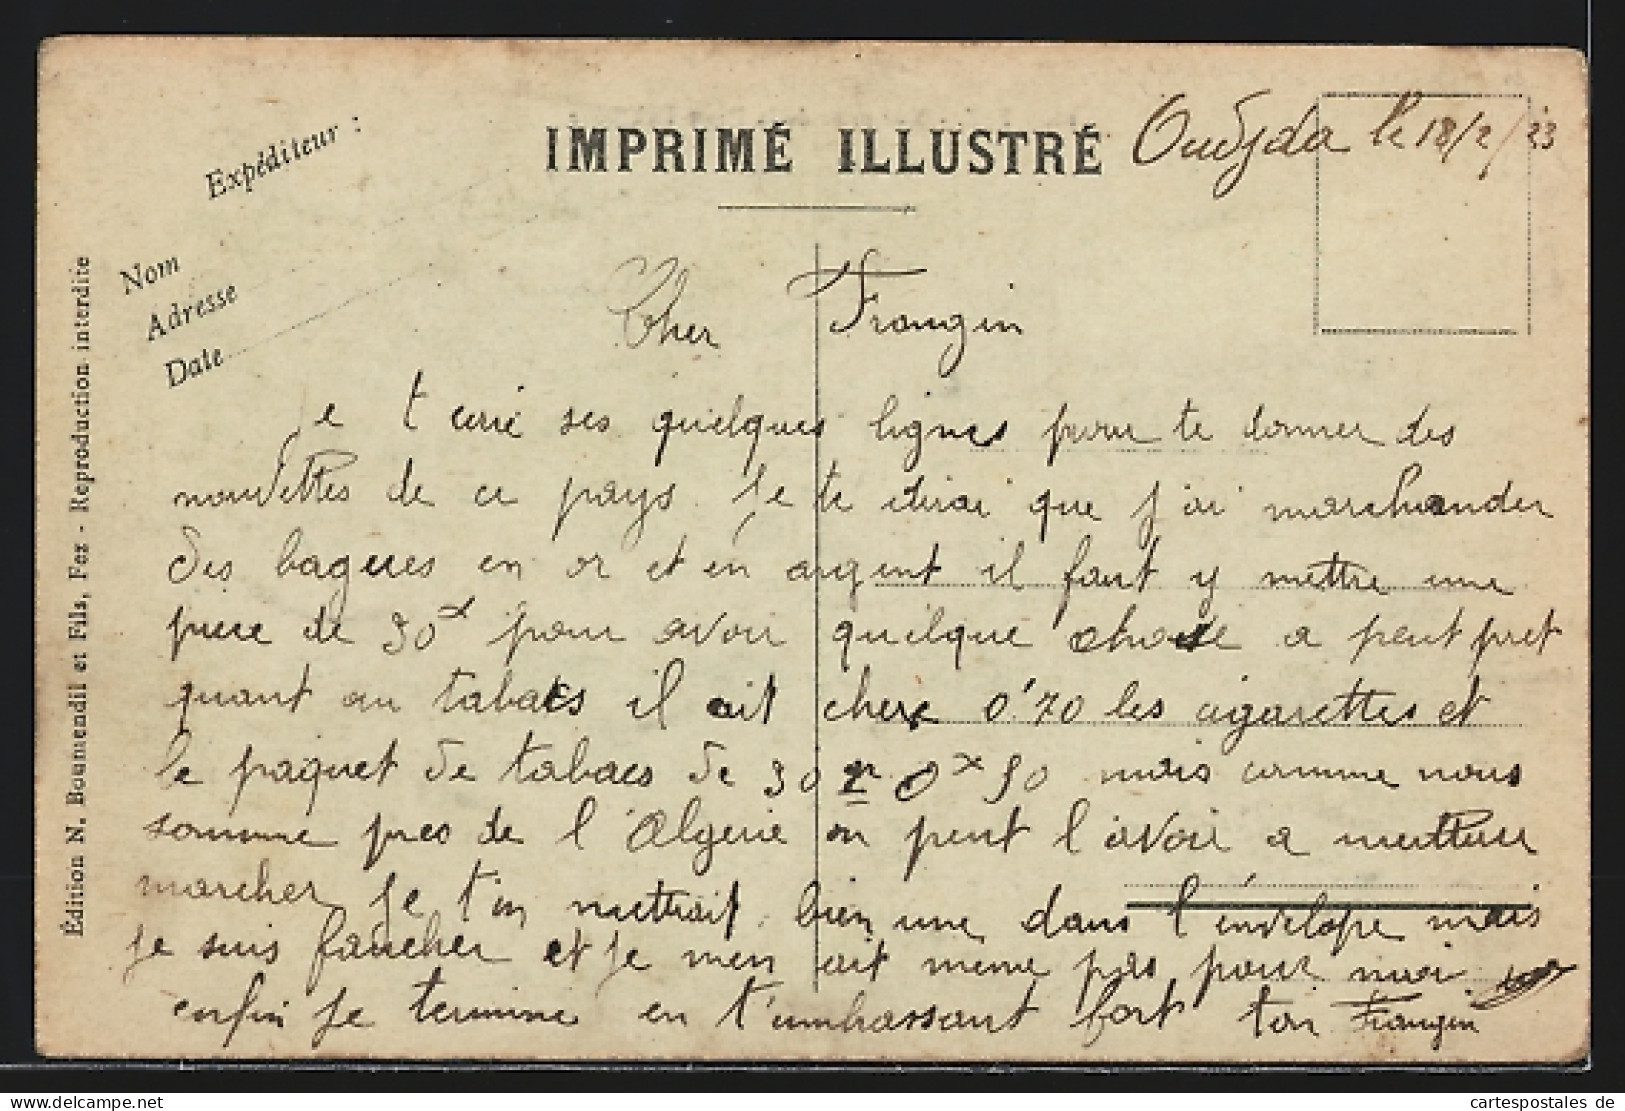 IMPRIMÉ ILLUSTRÉ
Oudjda le 18/2/23
Expéditeur :
Nom
Adresse
Date
Édition N. Boumendil et Fils, Fez - Reproduction interdite
Cher Frangin
Je t ecrie ses quelques lignes pour te donner des
nouvettes de ce pays. Je te dirai que j ai marchander
des bagues en or et en argent il faut y mettre une
piece de 30 pour avoir quelque chose a peut pret
quant au tabacs il ait chere 0'70 les cigarettes et
le paquet de tabacs de 30 mais comme nous
somme pres de l Algerie on peut l avoir a meitteur
marcher je t'en mettrait bien une dans l'envelope mais
je suis faucher et je men ait meme pas pour moi
enfin je termine en t'embrassant fort ton Frangin
cartespostales de
www.delcampe.net